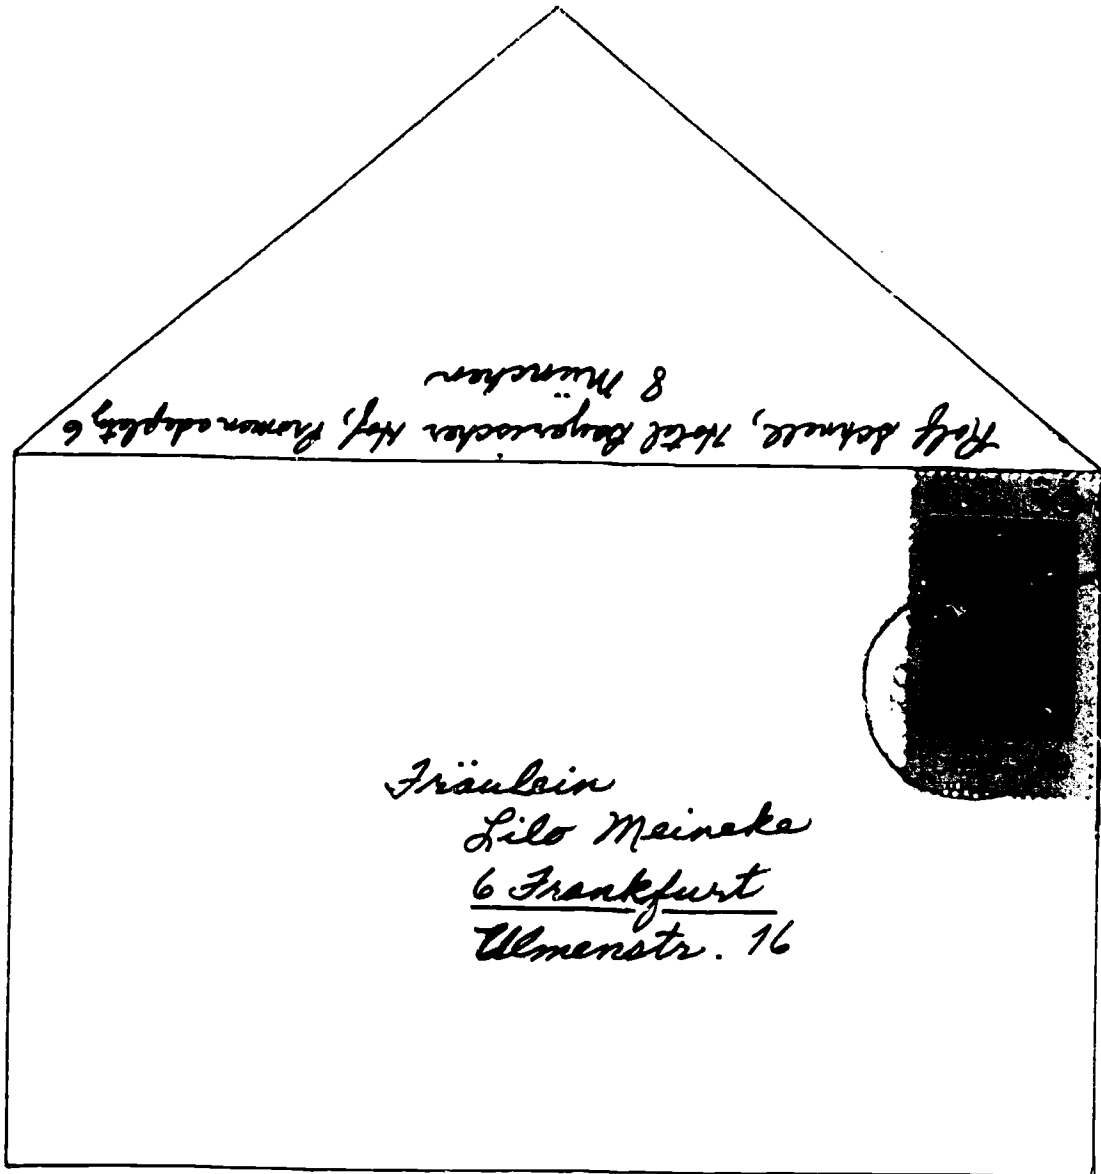 Rolf Schnell, Hotel Bayerischer Hof, Promenadeplatz 6
8 München
Fräulein
Lilo Meineke
6 Frankfurt
Ulmenstr. 16